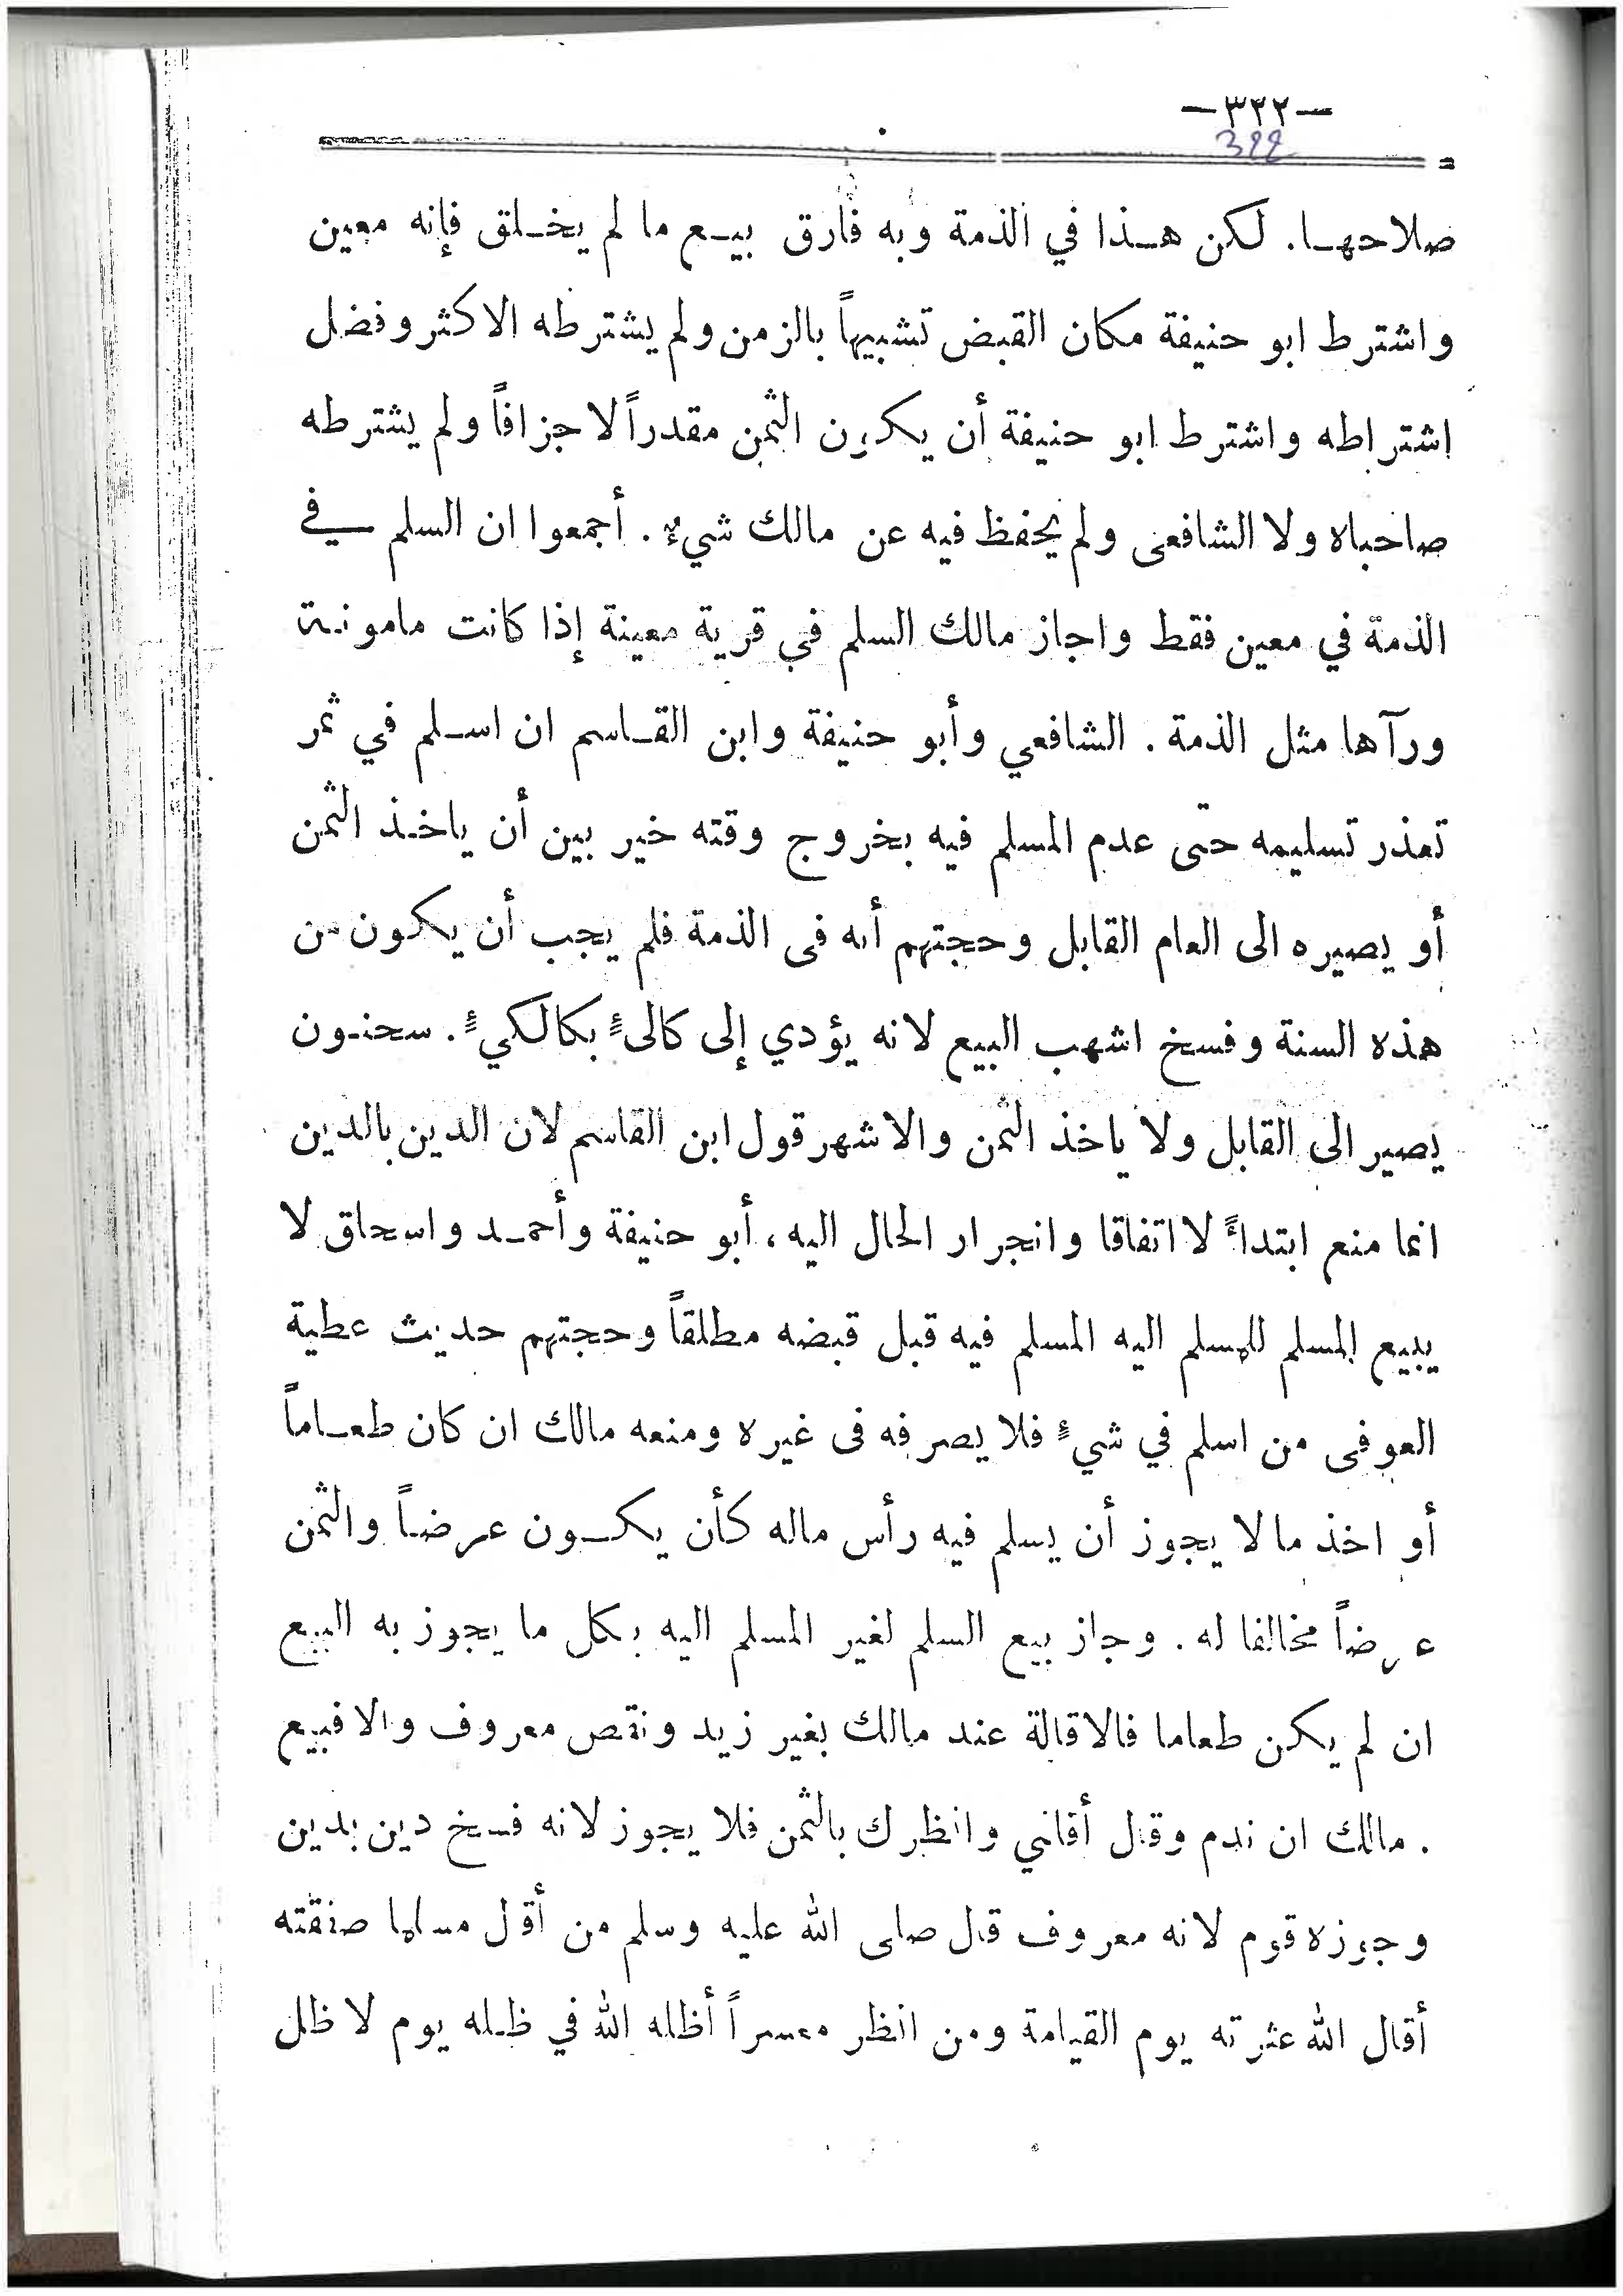 —٣٢٢—
322
صلاحها. لكن هذا في الذمة وبه فارق بيع ما لم يخلق فإنه معين
واشترط ابو حنيفة مكان القبض تشبيهاً بالزمن ولم يشترطه الاكثر وفضل
اشتراطه واشترط ابو حنيفة أن يكون الثمن مقدراً لا جزافاً ولم يشترطه
صاحباه ولا الشافعى ولم يحفظ فيه عن مالك شيءٌ. أجمعوا ان السلم في
الذمة في معين فقط واجاز مالك السلم في قرية معينة إذا كانت مامونة
ورآها مثل الذمة. الشافعي وأبو حنيفة وابن القاسم ان اسلم في ثمر
تعذر تسليمه حتى عدم المسلم فيه بخروج وقته خير بين أن ياخذ الثمن
أو يصيره الى العام القابل وحجتهم أنه فى الذمة فلم يجب أن يكون من
هذه السنة وفسخ اشهب البيع لانه يؤدي إلى كالىءٍ بكالكيءٍ. سحنون
يصير الى القابل ولا ياخذ الثمن والاشهر قول ابن القاسم لان الدين بالدين
انما منع ابتداءً لا اتفاقا وانجرار الحال اليه، أبو حنيفة وأحمد واسحاق لا
يبيع المسلم للمسلم اليه المسلم فيه قبل قبضه مطلقاً وحجتهم حديث عطية
العوفى من اسلم في شيءٍ فلا يصرفه فى غيره ومنعه مالك ان كان طعاماً
أو اخذ ما لا يجوز أن يسلم فيه رأس ماله كأن يكون عرضاً والثمن
عرضاً مخالفا له. وجاز بيع السلم لغير المسلم اليه بكل ما يجوز به البيع
ان لم يكن طعاما فالاقالة عند مالك بغير زيد ونقص معروف والا فبيع
. مالك ان ندم وقال أقلني وانظرك بالثمن فلا يجوز لانه فسخ دين بدين
وجوزه قوم لانه معروف قال صلى الله عليه وسلم من أقال مسلما صفقته
أقال الله عثرته يوم القيامة ومن انظر معسراً أظله الله في ظله يوم لا ظل